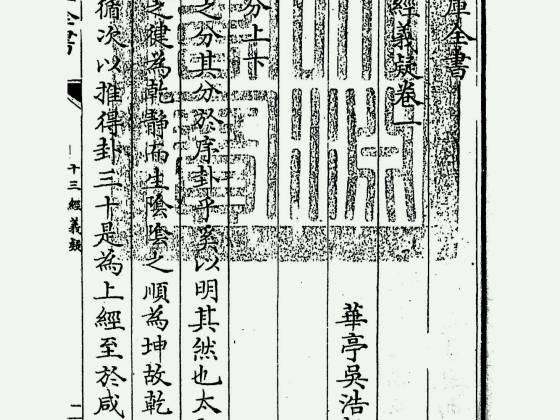 庫全書
經義疑卷一
華亭吳浩
分上下
之分其分於序卦乎奚以明其然也太
之健為乾静而生陰陰之順為坤故乾
循次以推得卦三十是為上經至於咸
全書
十三經義疑